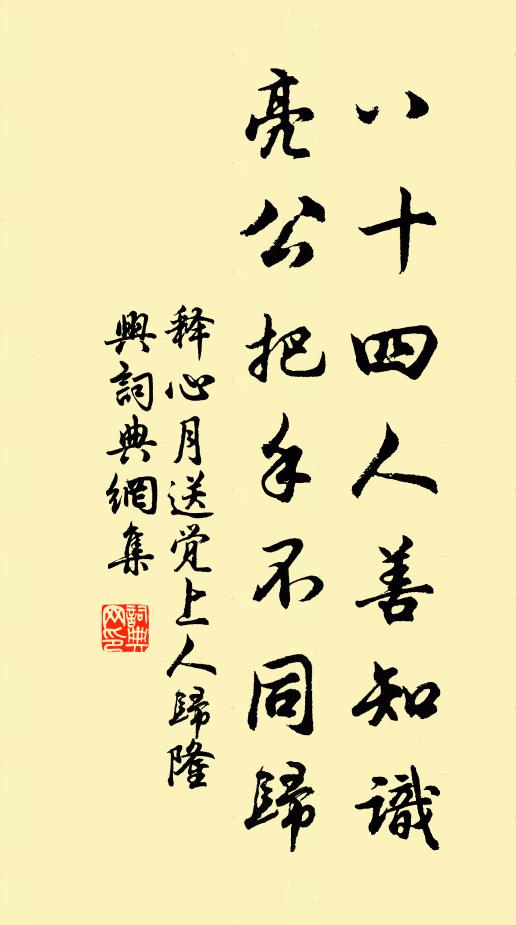 八十四人善知識
亮公把手不同歸
释心月送觉上人歸隆
興詞典網集
詞典
网印